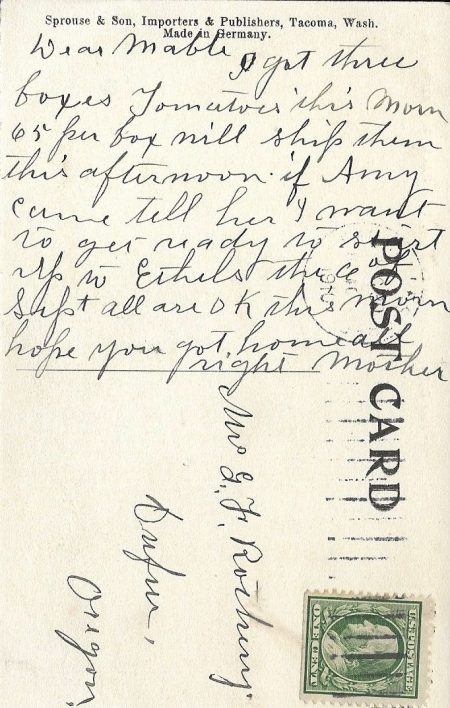 Sprouse & Son, Importers & Publishers, Tacoma, Wash.
Made in Germany.
Dear Mable I got three
boxes Tomatoes this Morn
65 per box will ship them
this afternoon. if Amy
came tell her I want
to get ready to start
up to Ethels the 6 of
Sept all are OK this morn
hope you got home all
right Mother
POST CARD
Mrs E. F.
Dufur,
Oregon,
U.S. POSTAGE
ONE CENT